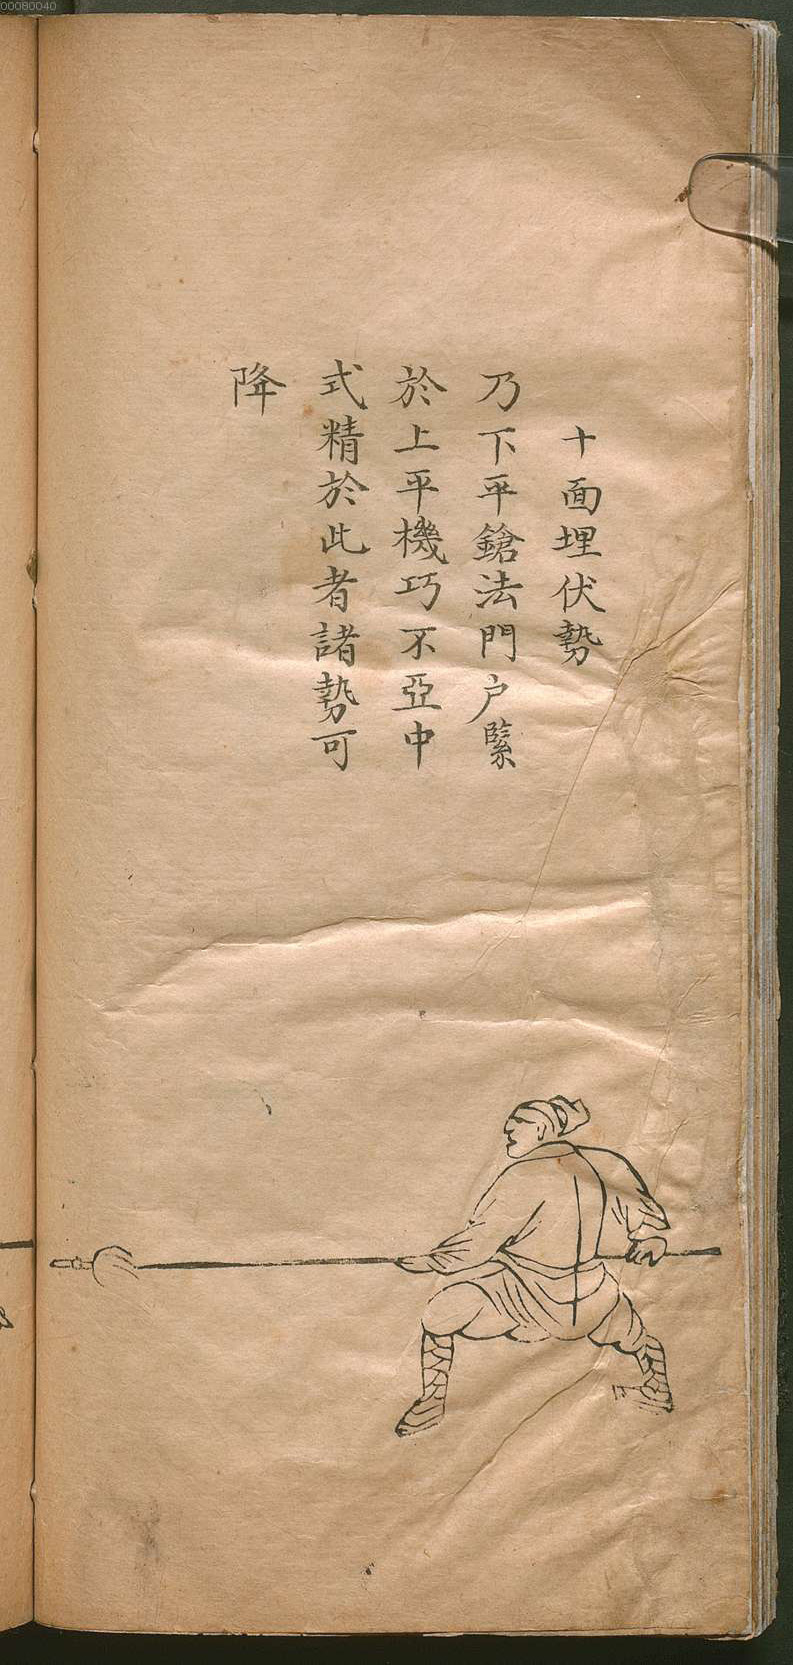 00080040
十面埋伏勢
乃下平鎗法門户緊
於上平機巧不亞中
式精於此者諸勢可
降